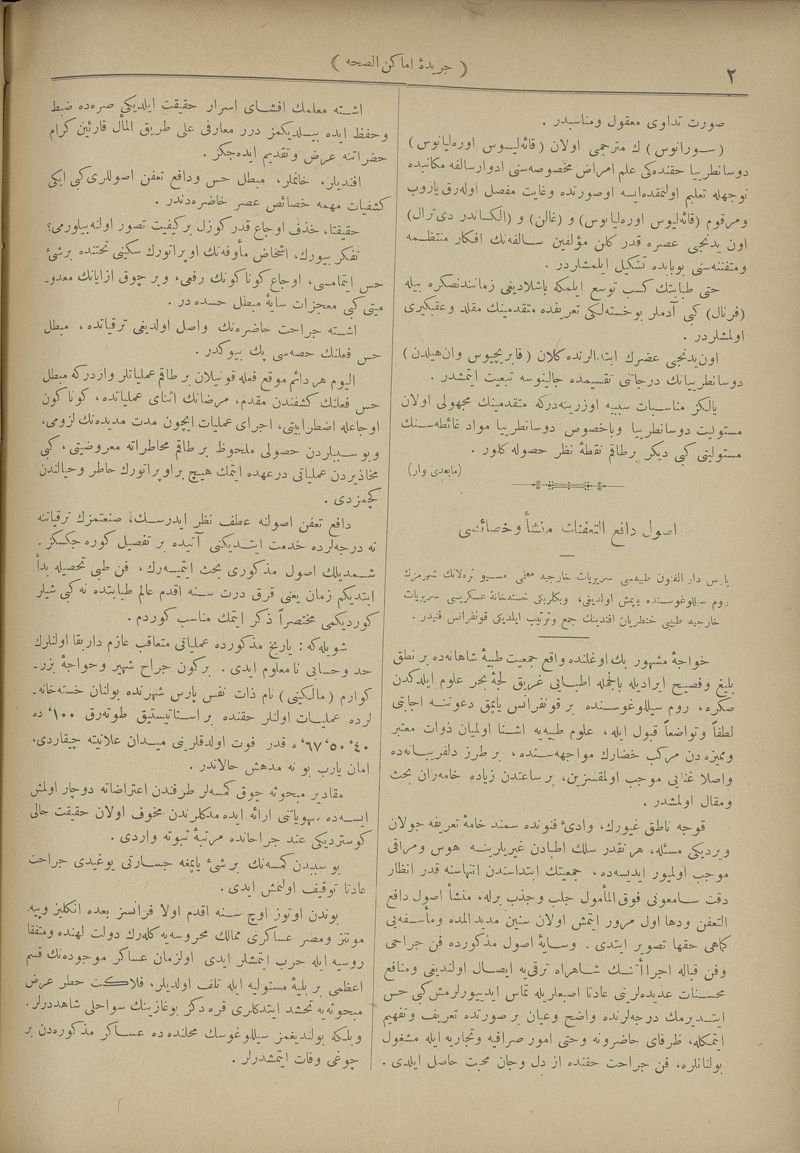 ٢
( جريدۀ اماكن الصحه )
صورت تداوى معقول ومناسبدر .
(سورانوس) ك مترجمى اولان (قائه ليوس اوره ليانوس)
دوسانطريا حقنده كى علم امراض مخصوصه سنى ادوار سالفه مكاتبنده
نوجهله تعليم اولنمقده ايسه اوصورتده وغايت مفصل اوله رق يازوب
ومرقوم (قائه ليوس اوره ليانوس) و (غالن) و (الكساندر دى ترال)
اون يدنجى عصره قدر كلن مؤلفين سالفه نك افكار منتظمه
ومتفننه سنى بوبابده تشكيل ايلمشلردر .
حتى طبابتك كسب توسع ايلمكه باشلاديغى زماندنصكره بيله
(فرنال) كبى آدملر بوخسته لكى تعريفده متقدمينك مقلد وعقبكيرى
اولمشلردر .
اون يدنجى عصرك ابتدالرنده كلان (فابريچيوس وان هيلدن)
دوسانطريانك درجاتى تقسيمده جالينوسه تبعيت ايتمشدر .
يالكز مناسبات سببيه اوزرينه دركه متقدمينك مجهولى اولان
مستوليت دوسانطريا وباخصوص دوسانطريا مواد غائطه سنك
مستوليتى كبى ديكر برطاقم نقطۀ نظر حصوله كلور .
(مابعدى وار)
اصول دافع التعفنات منشأ وخصائصى
پارس دار الفنون طبيه سى سريريات خارجيه معلمى مسيو تره لانك شهرمزك
روم سيللوغوسنده ايتمش اولديغى، وبكلربكى خسته خانۀ عسكريسى سريريات
خارجيه طبيبى خنطريان افندينك جمع وترتيب ايلديكى قونفرانس فنيدر .
خواجۀ مشهور بك اوغلنده واقع جمعيت طبيۀ شاهانه ده بر نطق
بليغ وفصيح ايراديله بالجمله اطبايى غريق لجۀ بحر علوم ايلدكدن
صكره، روم سيللوغوسنده بر قونفرانس ياپمق دعوتنه اجابتى
لطفاً وتواضعاً قبول ايله، علوم طبيه يه آشنا اولميان ذوات معتبر
ومميزه دن مركب حضارك مواجهه سنده، بر طرز دلفريبانه ده
واصلا غثايى موجب اولمقسزين، بر ساعتدن زياده خامه ران بحث
ومقال اولمشدر .
قوجه ناطق غيورك، وادئ فنونده سمند خامۀ تعريفه جولان
ويرديكى مسئله، هر نقدر سلك اطبادن غيريلرينه هوس ومراقى
موجب اولميور ايديسه ده، جمعيتك ابتداسندن انتهاسنه قدر انظار
دقت سامعونى فوق المأمول جلب وجذب برله، منشأ اصول دافع
التعفن ودها اول مرور ايتمش اولان سنين مديده الده ومأسفه يى
كماهى حقها تصوير ايتدى . وسايۀ اصول مذكورده فن جراحى
وفن قباله اجراآتنك شاهراه ترقى يه ايصال اولنديغى ومنافع
محسنات عديده لرنى عادتا اصبعلريله تماس ايدييورلرمش كبى حس
ايتديرمك درجه لرنده واضح وعيان بر صورتده تعريف وتفهيم
ايتمكله، ظرفاى حاضرونه وحتى امور صرافيه وتجاريه ايله مشغول
بولنانلره، فن جراحت حقنده از دل وجان محبت حاصل ايلدى .
اشته معلمك افشاى اسرار حقيقت ايلديكى صره ده ضبط
وحفظ ايده بيلديكمز درر معارفى على طريق المآل قارئين كرام
حضراتنه عرض وتقديم ايده جكز .
افنديلر، خانملر، مبطل حس ودافع تعفن اصوللرى كبى ايكى
كشفيات مهمه خصائص عصر حاضره دندر .
حقيقتا، خذف اوجاع قدر كوزل بر كيفيت تصور اولنه بيلورمى؟
تفكر بيورك، اشخاص مأوفه نك اوپراتورك سكينى تحتنده برشئ
حس ايتمامسى، اوجاع كوناكونك رفعى، وبر چوق ازايانك معدو-
ميتى كبى معجزات سايۀ مبطل حسده در .
اشته جراحت حاضره نك واصل اولديغى ترقياتده، مبطل
حس فعلنك حصه سى پك بيوكدر .
اليوم هر دائم موقع فعله قونيلان بر طاقم عملياتلر واردركه مبطل
حس فعلنك كشفندن مقدم، مرضانك اثناى عملياتده، كوناكون
اوجاعله اضطرابيتى، اجراى عمليات ايچون مدت مديده نك لزومى،
وبو سببلردن حصولى ملحوظ بر طاقم مخاطراته معروضيتى، كبى
مخاذيردن عملياتى درعهده ايتمك هيچ بر اوپراتورك خاطر وخيالندن
كچمزدى .
دافع تعفن اصولنه عطف نظر ايدرسك، صنعتمزك ترقياتنه
نه درجه لرده خدمت ايتديكنى آتيده بر تفصيل كوره جكسكز .
شمديلك اصول مذكورى بحث ايتميه رك، فن طبى تحصيله بدأ
ايتديكم زمان يعنى قرق درت سنه اقدم عالم طبابتده نه كى شيلر
كورديكمى مختصراً ذكر ايتمك مناسب كوردم .
شويله كه : ياريخ مذكورده عملياتى متعاقب عازم داربقا اولنلرك
حد وحسابى نامعلوم ايدى . بركون جراح شهير وخواجۀ بزر-
كوارم (مالكينى) نام ذات نفس پارس شهرنده بولنان خسته خانه-
لرده عمليات اولنلر حقنده بر استاتيستيق طوته رق ١٠٠، ده
٤٠، ٥٠، ٦٧، ه قدر فوت اولدقلرينى ميدان علانيته چيقاردى،
امان يارب بو نه مدهش حالاندر .
مقادير مبحوثه چوق كمسه لر طرفندن اعتراضاته دوچار اولمش
ايسه ده، بهوياتنى ارائه ايده مدكلرندن مخوف اولان حقيقت حالى
كوسترديكى عند جراحانده مرتبۀ ثبوته واردى .
بو سببدن كمسه نك برشئ ياپمغه جسارتى يوغيدى جراحت
عادتا توقيف اولنمش ايدى .
بوندن اوتوز اوچ سنه اقدم اولا فرانسز بعده انكليز وپيه
مونتز ومصر عساكرى ممالك محروسه يه كله رك دولت لهنده ومتفقا
روسيه ايله حرب ايتمشلر ايدى اولزمان عساكر موجوده نك قسم
اعظمى بر بليۀ مستوليه ايله تلف اولديلر، فلاكت حطر عرض
مبحوثه يه تحشد ايتدكلرى قره دكز بوغازينك سواحلى شاهددرلر.
وبلكه بولنديغمز سيللوغوسك محلنده ده عساكر مذكوره دن بر
چوغى وفات ايتمشدرلر .